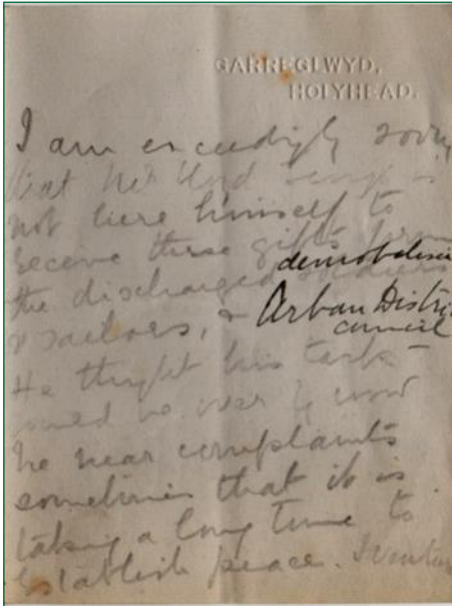 GARREGLWYD,
HOLYHEAD.
I am exceedigly sorry
that
not here himself to
receive these gifts from
demobilise
the discharged soldiers
& sailors, & Urban Distri
council
He thought his task
would be over by now
he hear complaints
sometimes that it is
taking a long time to
establish peace. I venture